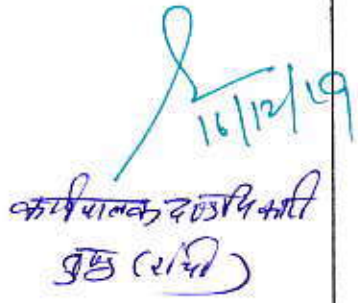 16/12/19
कार्यपालक दण्डाधिकारी
(राँची)